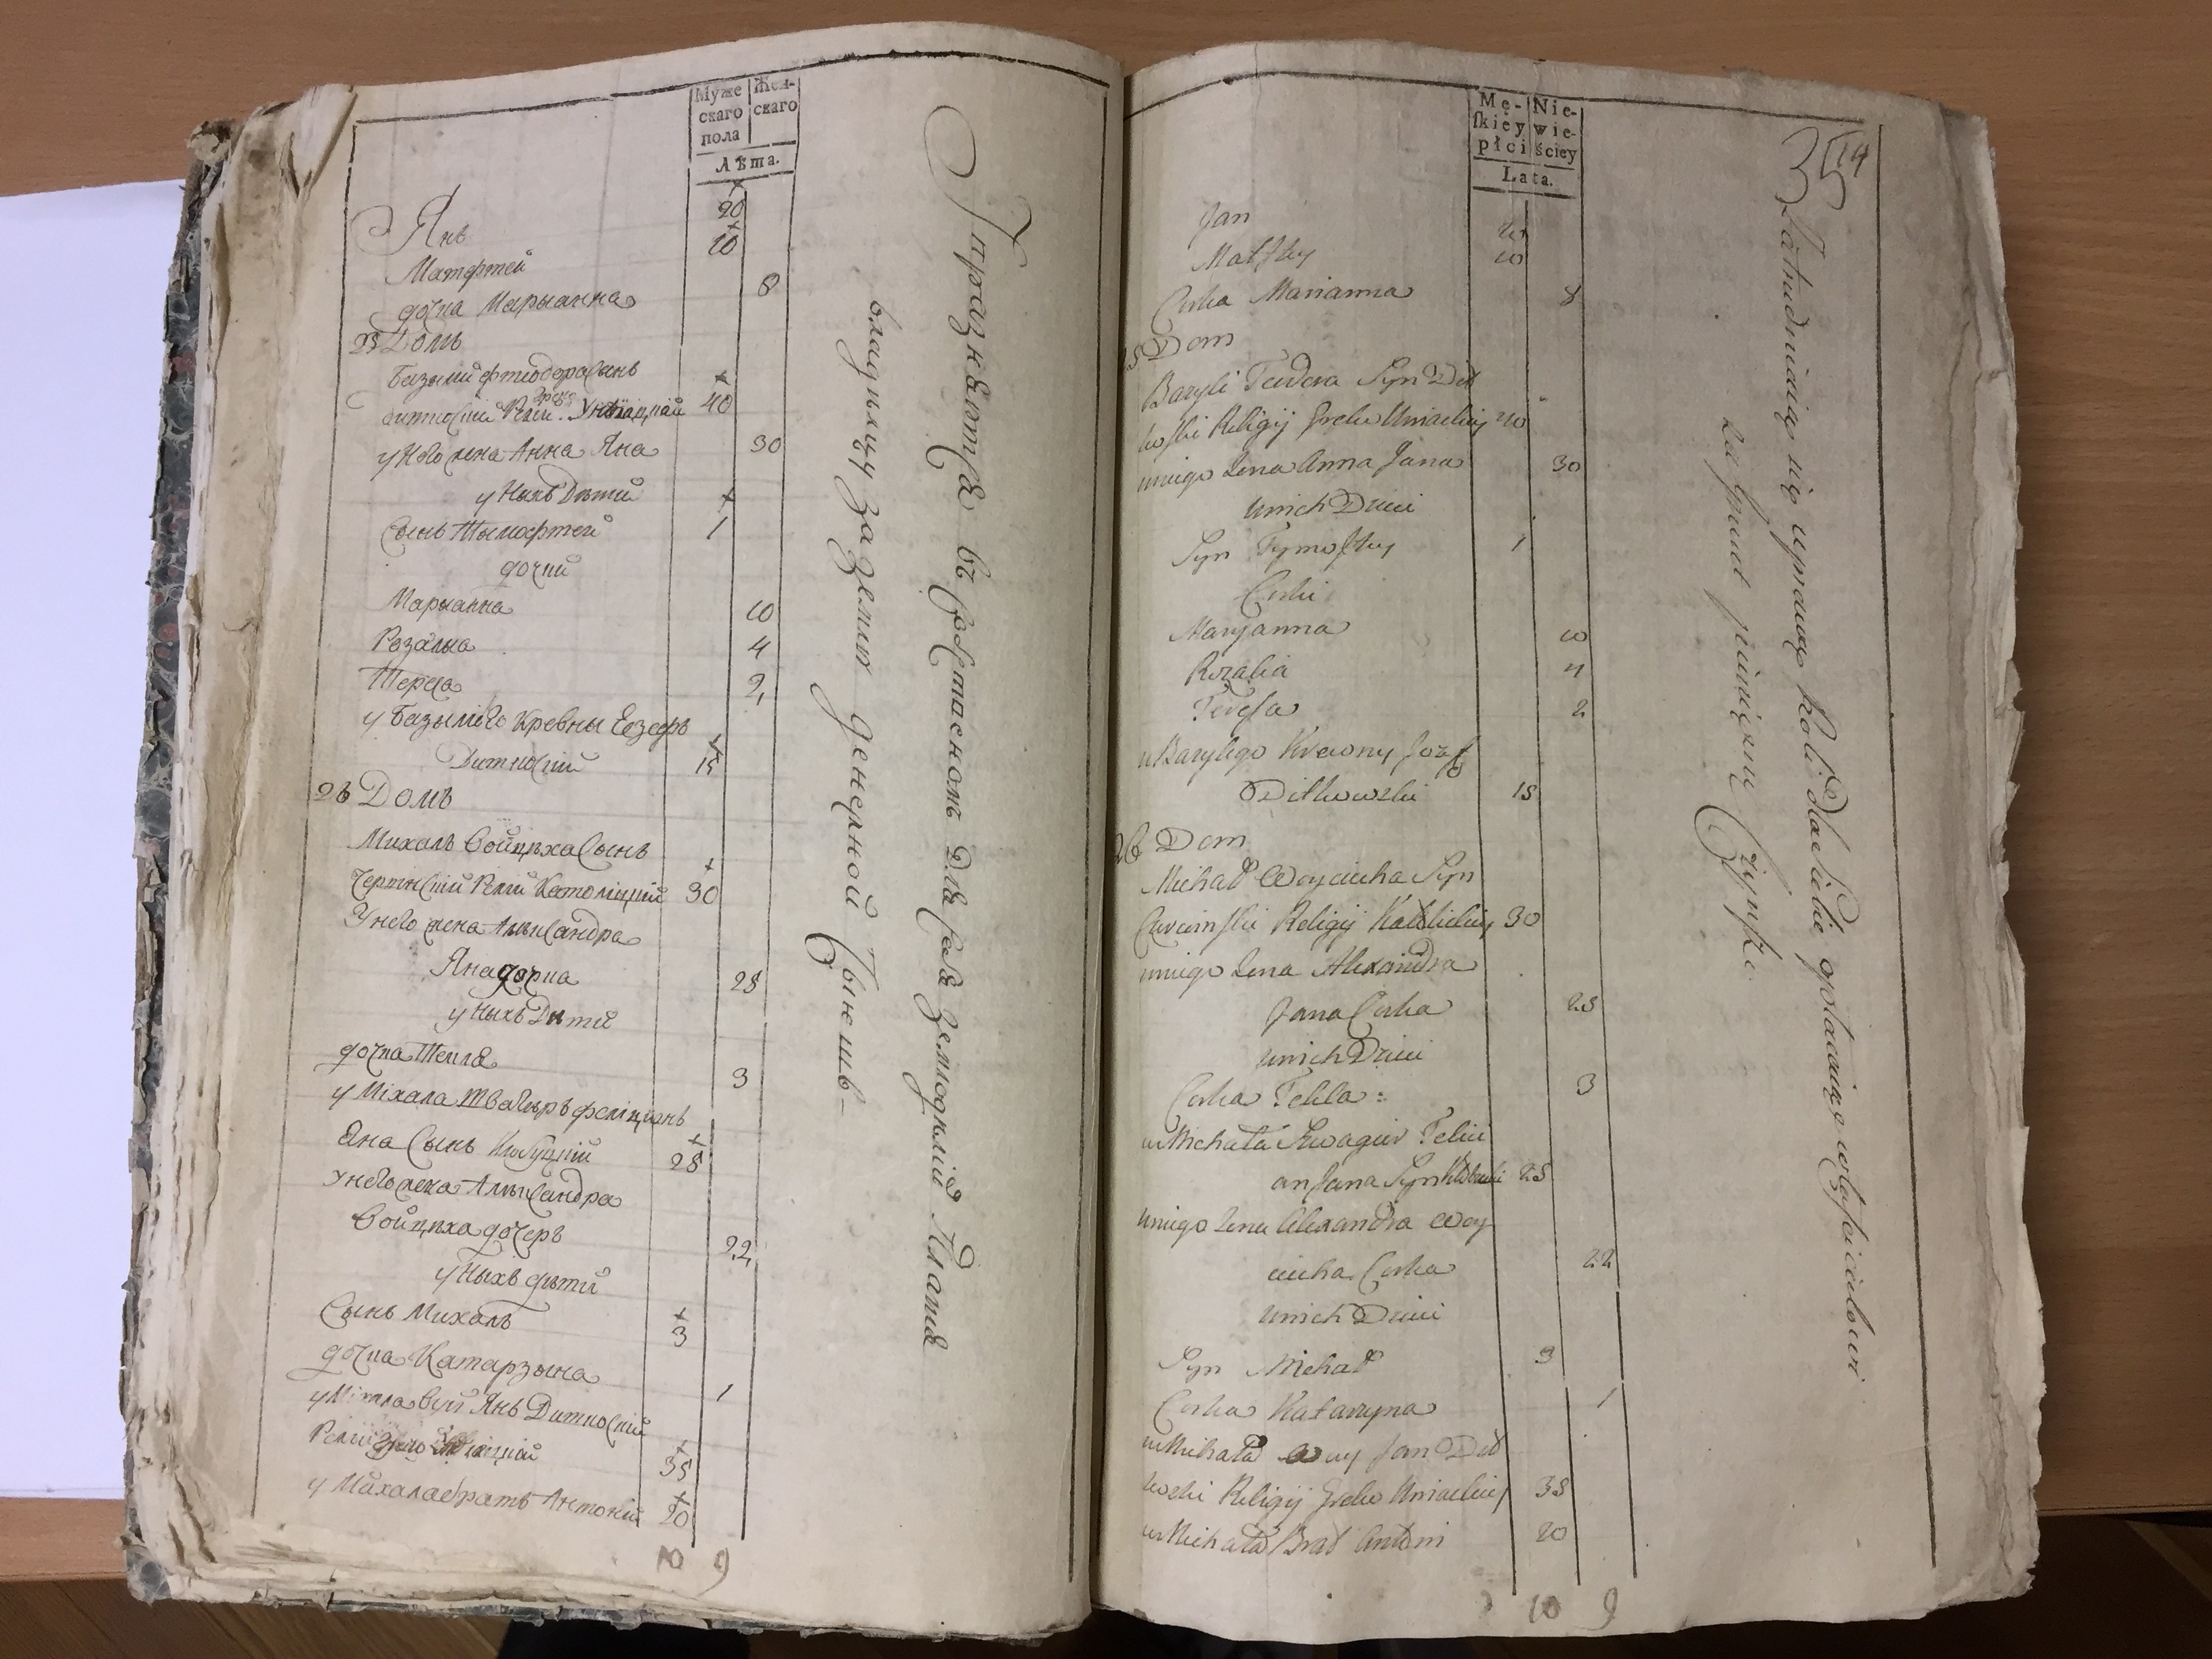 Муже скаго пола
Жен- скаго
Лѣта.
Янъ 20
Матфтей 10
дочка Марыанна 8
25 Домъ
Базылий Фтіодора Сынъ
Дитковскій Релі. Греко Унѣіацкій 40
у Него жена Анна Яна 30
у Ныхъ Дѣтей
Сынъ Тымофтей 1
дочкй
Марыанна 10
Розалыа 4
Тереса 2
у Базылего Кревны Еозефъ
Дитковскій 15
26 Домъ
Михалъ Войцѣха Сынъ
Черскій Релій Католицкій 30
У него жена Алыксандра
Яна дочка 28
у Ныхъ Дѣтей
дочка Текля 3
у Міхала Швагеръ Феліцыянъ
Яна Сынъ 28
у него жена Алыксандра
Войцѣха дочеръ 22
у Ныхъ дѣтей
Сынъ Михалъ 3
дочка Катарзына 1
у Міхала Вуй Янъ Дитковскій
Релій 35
у Міхала братъ Антоній 20
10 9
Упразнѣетсѧ въ собстъвеномъ для себя земледѣлій Платя
владѣльцу за землю денежной Чыншъ
Mę- skiey płci
Nie- wie- ściey
Lata.
Jan 20
Matfhey 10
Corka Marianna 8
25 Dom
Bazyli Teodora Syn Dit
kowski Religij Greko Uniackiey 40
uniego Zona Anna Jana 30
unich Dzieci
Syn Tymofthey 1
Corki
Maryanna 10
Rozalia 4
Teresa 2
u Bazylego Krewny Jozef
Ditkowski 15
26 Dom
Michał Woyciecha Syn
Religij Katolickiey 30
uniego Zona Alexandra
Jana Corka 28
unich Dzieci
Corka Tekla: 3
u Michała Szwagier Felici
an Jana Syn 28
uniego Zona Alexandra Woy
ciecha Corka 22
unich Dzieci
Syn Michał 3
Corka Katarzyna 1
u Michała Wuy Jan Dit
kowski Religij Greko Uniackiey 35
u Michała Brat Antoni 20
10 9
35
Zatrudniaią się uprawą Roli dla siebie opłacaiąc właścicielowi
za grunt pieniężny Czynsz.